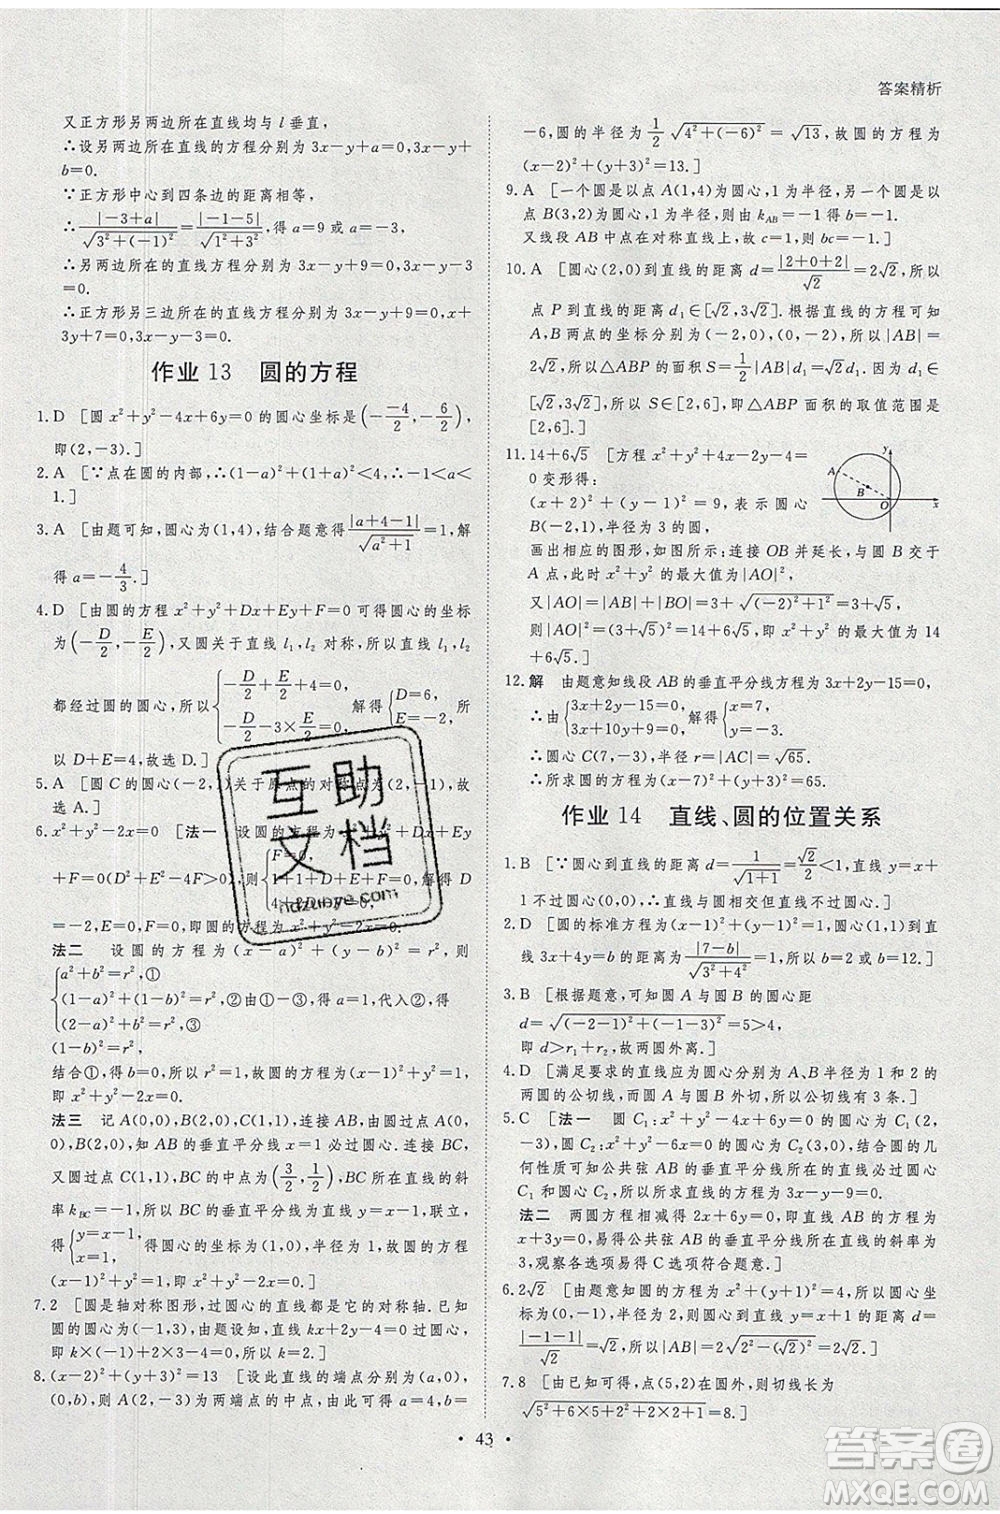 答案精析
又正方形另两边所在直线均与 l 垂直，
∴设另两边所在直线的方程分别为 3x－y＋a＝0，3x－y＋
b＝0．
∵正方形中心到四条边的距离相等，
∴|－3＋a|/√(3²＋(－1)²)＝|－1－5|/√(1²＋3²)，得 a＝9 或 a＝－3，
∴另两边所在的直线方程分别为 3x－y＋9＝0，3x－y－3
＝0．
∴正方形另三边所在的直线方程分别为 3x－y－3＝0，x＋
3y＋7＝0，3x－y＋9＝0．
作业 13　圆的方程
1．D　[圆 x²＋y²－4x＋6y＝0 的圆心坐标是(－(－4)/2，－6/2)，
即(2，－3)．]
2．A　[∵点在圆的内部，∴(1－a)²＋(1＋a)²＜4，∴－1＜a＜
1．]
3．A　[由题可知，圆心为(1，4)，结合题意得|a＋4－1|/√(a²＋1)＝1，解
得 a＝－4/3．]
4．D　[由圆的方程 x²＋y²＋Dx＋Ey＋F＝0 可得圆心的坐标
为(－D/2，－E/2)，又圆关于直线 l₁，l₂ 对称，所以直线 l₁，l₂
都经过圆的圆心，所以{－D/2＋E/2＋4＝0，－D/2－3×E/2＝0，解得{D＝6，E＝－2，所
以 D＋E＝4，故选 D．]
5．A　[圆 C 的圆心(－2，1)关于原点的对称点为(2，－1)，故
选 A．]
6．x²＋y²－2x＝0　[法一　设圆的方程为 x²＋y²＋Dx＋Ey
＋F＝0(D²＋E²－4F＞0)，则{F＝0，1＋1＋D＋E＋F＝0，4＋2D＋F＝0，解得 D
＝－2，E＝0，F＝0，故圆的方程为 x²＋y²－2x＝0．
法二　设圆的方程为(x－a)²＋(y－b)²＝r²，则
{a²＋b²＝r²，①
(1－a)²＋(1－b)²＝r²，②由①－③，得 a＝1，代入②，得
(2－a)²＋b²＝r²，③
(1－b)²＝r²，④
结合①，得 b＝0，r²＝1，故圆的方程为(x－1)²＋y²＝1，
即 x²＋y²－2x＝0．
法三　记 A(0，0)，B(2，0)，C(1，1)，连接 AB，由圆过点 A(0，
0)，B(2，0)，知 AB 的垂直平分线 x＝1 必过圆心．连接 BC，
又圆过点 C(1，1)，BC 的中点为(3/2，1/2)，BC 所在直线的斜
率 kBC＝－1，所以 BC 的垂直平分线为直线 y＝x－1，联立，
得{y＝x－1，x＝1，得圆心的坐标为(1，0)，半径为 1，故圆的方程为
(x－1)²＋y²＝1，即 x²＋y²－2x＝0．]
7．2　[圆是轴对称图形，过圆心的直线都是它的对称轴．已知
圆的圆心为(－1，3)，由题设知，直线 kx＋2y－4＝0 过圆心，即
k×(－1)＋2×3－4＝0，解得 k＝2．]
8．(x－2)²＋(y＋3)²＝13　[设此直径的两端点分别为(a，0)，
(0，b)，由于圆心坐标为(2，－3)，所以 a＝4，b＝
－6，圆的半径为1/2√(4²＋(－6)²)＝√13，故圆的方程为
(x－2)²＋(y＋3)²＝13．]
9．A　[一个圆是以点 A(1，4)为圆心，1 为半径，另一个圆是以
点 B(3，2)为圆心，1 为半径，则由 kAB＝－1 得 b＝－1．
又线段 AB 中点在对称直线上，故 c＝1，则 bc＝－1．]
10．A　[圆心(2，0)到直线的距离 d＝|2＋0＋2|/√2＝2√2，所以
点 P 到直线的距离 d₁∈[√2，3√2]．根据直线的方程可知
A，B 两点的坐标分别为(－2，0)，(0，－2)，所以|AB|＝
2√2，所以△ABP 的面积 S＝1/2|AB|d₁＝√2d₁．因为 d₁∈
[√2，3√2]，所以 S∈[2，6]，即△ABP 面积的取值范围是
[2，6]．]
11．14＋6√5　[方程 x²＋y²＋4x－2y－4＝
0 变形得：
(x＋2)²＋(y－1)²＝9，表示圆心
B(－2，1)，半径为 3 的圆．
画出相应的图形，如图所示：连接 OB 并延长，与圆 B 交于
A 点，此时 x²＋y² 的最大值为|AO|²，
又|AO|＝|AB|＋|BO|＝3＋√((－2)²＋1²)＝3＋√5，
则|AO|²＝(3＋√5)²＝14＋6√5，即 x²＋y² 的最大值为 14
＋6√5．]
A B O x y
12．解　由题意知线段 AB 的垂直平分线方程为 3x＋2y－15＝0，
∴由{3x＋2y－15＝0，3x＋10y＋9＝0，解得{x＝7，y＝－3．
∴圆心 C(7，－3)，半径 r＝|AC|＝√65．
∴所求圆的方程为(x－7)²＋(y＋3)²＝65．
作业 14　直线、圆的位置关系
1．B　[∵圆心到直线的距离 d＝1/√(1＋1)＝√2/2＜1，直线 y＝x＋
1 不过圆心(0，0)，∴直线与圆相交但直线不过圆心．]
2．D　[圆的标准方程为(x－1)²＋(y－1)²＝1，圆心(1，1)到直
线 3x＋4y＝b 的距离为|7－b|/√(3²＋4²)＝1，所以 b＝2 或 b＝12．]
3．B　[根据题意，可知圆 A 与圆 B 的圆心距
d＝√((－2－1)²＋(－1－3)²)＝5＞4，
即 d＞r₁＋r₂，故两圆外离．]
4．D　[满足要求的直线应为圆心分别为 A、B，半径为 1 和 2 的
两圆的公切线，而圆 A 与圆 B 外切，所以有 3 条．]
5．C　[法一　圆 C₁：x²＋y²－4x＋6y＝0 的圆心为 C₁(2，
－3)，圆 C₂：x²＋y²－6x＝0 的圆心为 C₂(3，0)，结合圆的几
何性质可知公共弦 AB 的垂直平分线所在的直线过圆心
C₁ 和圆心 C₂，所以所求直线的方程为 3x－y－9＝0．
法二　两圆方程相减得 2x＋6y＝0，即直线 AB 的方程为 x
＋3y＝0，易得公共弦 AB 的垂直平分线所在的直线的斜率为
3，观察各选项易得 C 选项符合题意．]
6．2√2　[由题意知圆的方程为 x²＋(y＋1)²＝4，所以圆心坐标
为(0，－1)，半径为 2，则圆心到直线 y＝x＋1 的距离 d＝
|－1－1|/√2＝√2，所以|AB|＝2√(2²－(√2)²)＝2√2．]
7．8　[由已知可得，点(5，2)在圆外，则切线长为
√(5²＋2²＋6×5＋2×2＋1)＝8．]
• 43 •
互助
文档
hdzuoye.com
答案卷
MXQE.COM